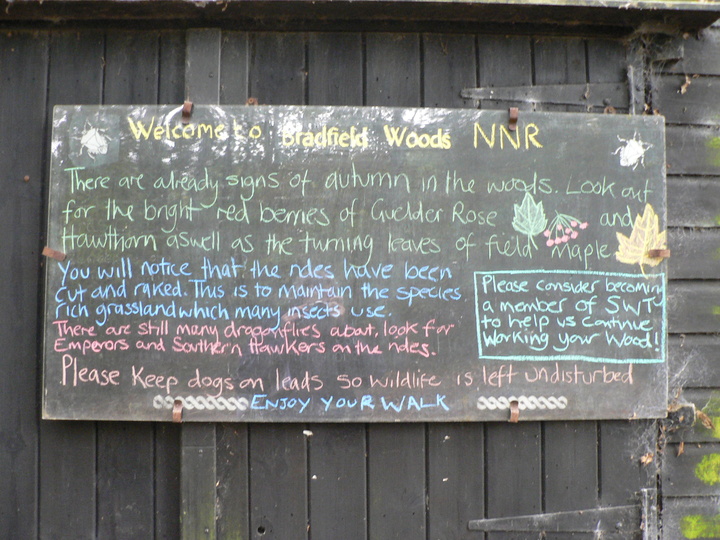 Welcome to Bradfield Woods NNR
There are already signs of autumn in the woods. Look out
for the bright red berries of Guelder Rose and
Hawthorn aswell as the turning leaves of field maple.
You will notice that the rides have been
cut and raked. This is to maintain the species
rich grassland which many insects use.
There are still many dragonflies about, look for
Emperors and Southern Hawkers on the rides.
Please consider becoming
a member of SWT
to help us continue
working your wood!
Please keep dogs on leads so wildlife is left undisturbed
ENJOY YOUR WALK